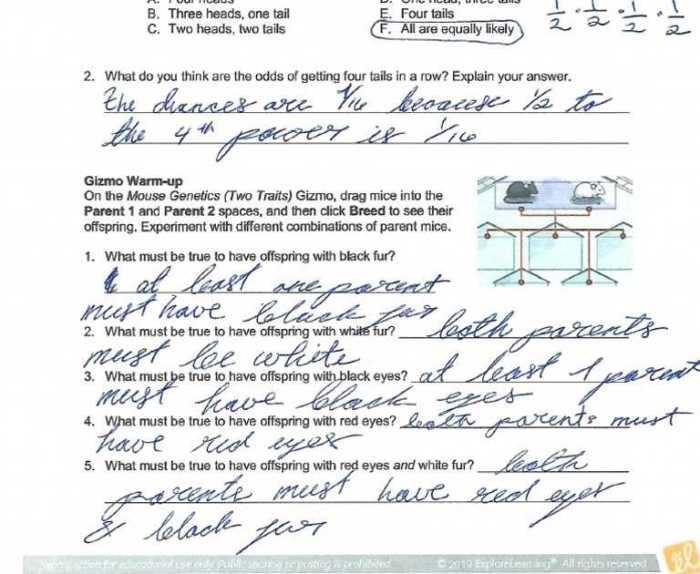 B. Three heads, one tail
C. Two heads, two tails
E. Four tails
F. All are equally likely
1/2 · 1/2 · 1/2 · 1/2
2. What do you think are the odds of getting four tails in a row? Explain your answer.
the chances are 1/16 because 1/2 to
the 4th power is 1/16
Gizmo Warm-up
On the Mouse Genetics (Two Traits) Gizmo, drag mice into the
Parent 1 and Parent 2 spaces, and then click Breed to see their
offspring. Experiment with different combinations of parent mice.
1. What must be true to have offspring with black fur?
at least one parent
must have black fur
2. What must be true to have offspring with white fur? both parents
must be white
3. What must be true to have offspring with black eyes? at least 1 parent
must have black eyes
4. What must be true to have offspring with red eyes? both parents must
have red eyes
5. What must be true to have offspring with red eyes and white fur? both
parents must have red eyes
& black fur
for educational use only. Public sharing or posting is prohibited.
© 2019 ExploreLearning® All rights reserved